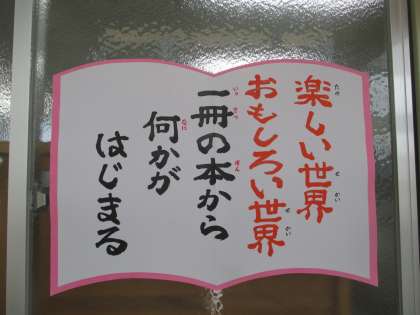 楽しい世界
おもしろい世界
一冊の本から
何かが
はじまる